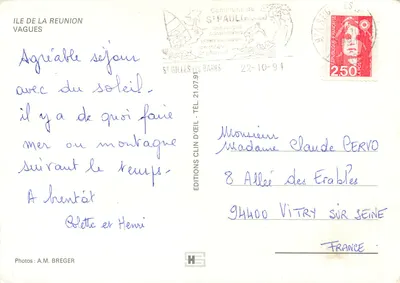 ILE DE LA REUNION
VAGUES
Agréable séjour
avec du soleil.
il y a de quoi faire
mer ou montagne
suivant le temps.
A bientôt
Colette et Henri
Photos : A.M. BREGER
EDITIONS CLIN D'ŒIL - TÉL. 21.07.91
ST PAUL
22-10-91
2,50
Monsieur
Madame Claude PERVO
8 Allée des Erables
94400 VITRY SUR SEINE
FRANCE